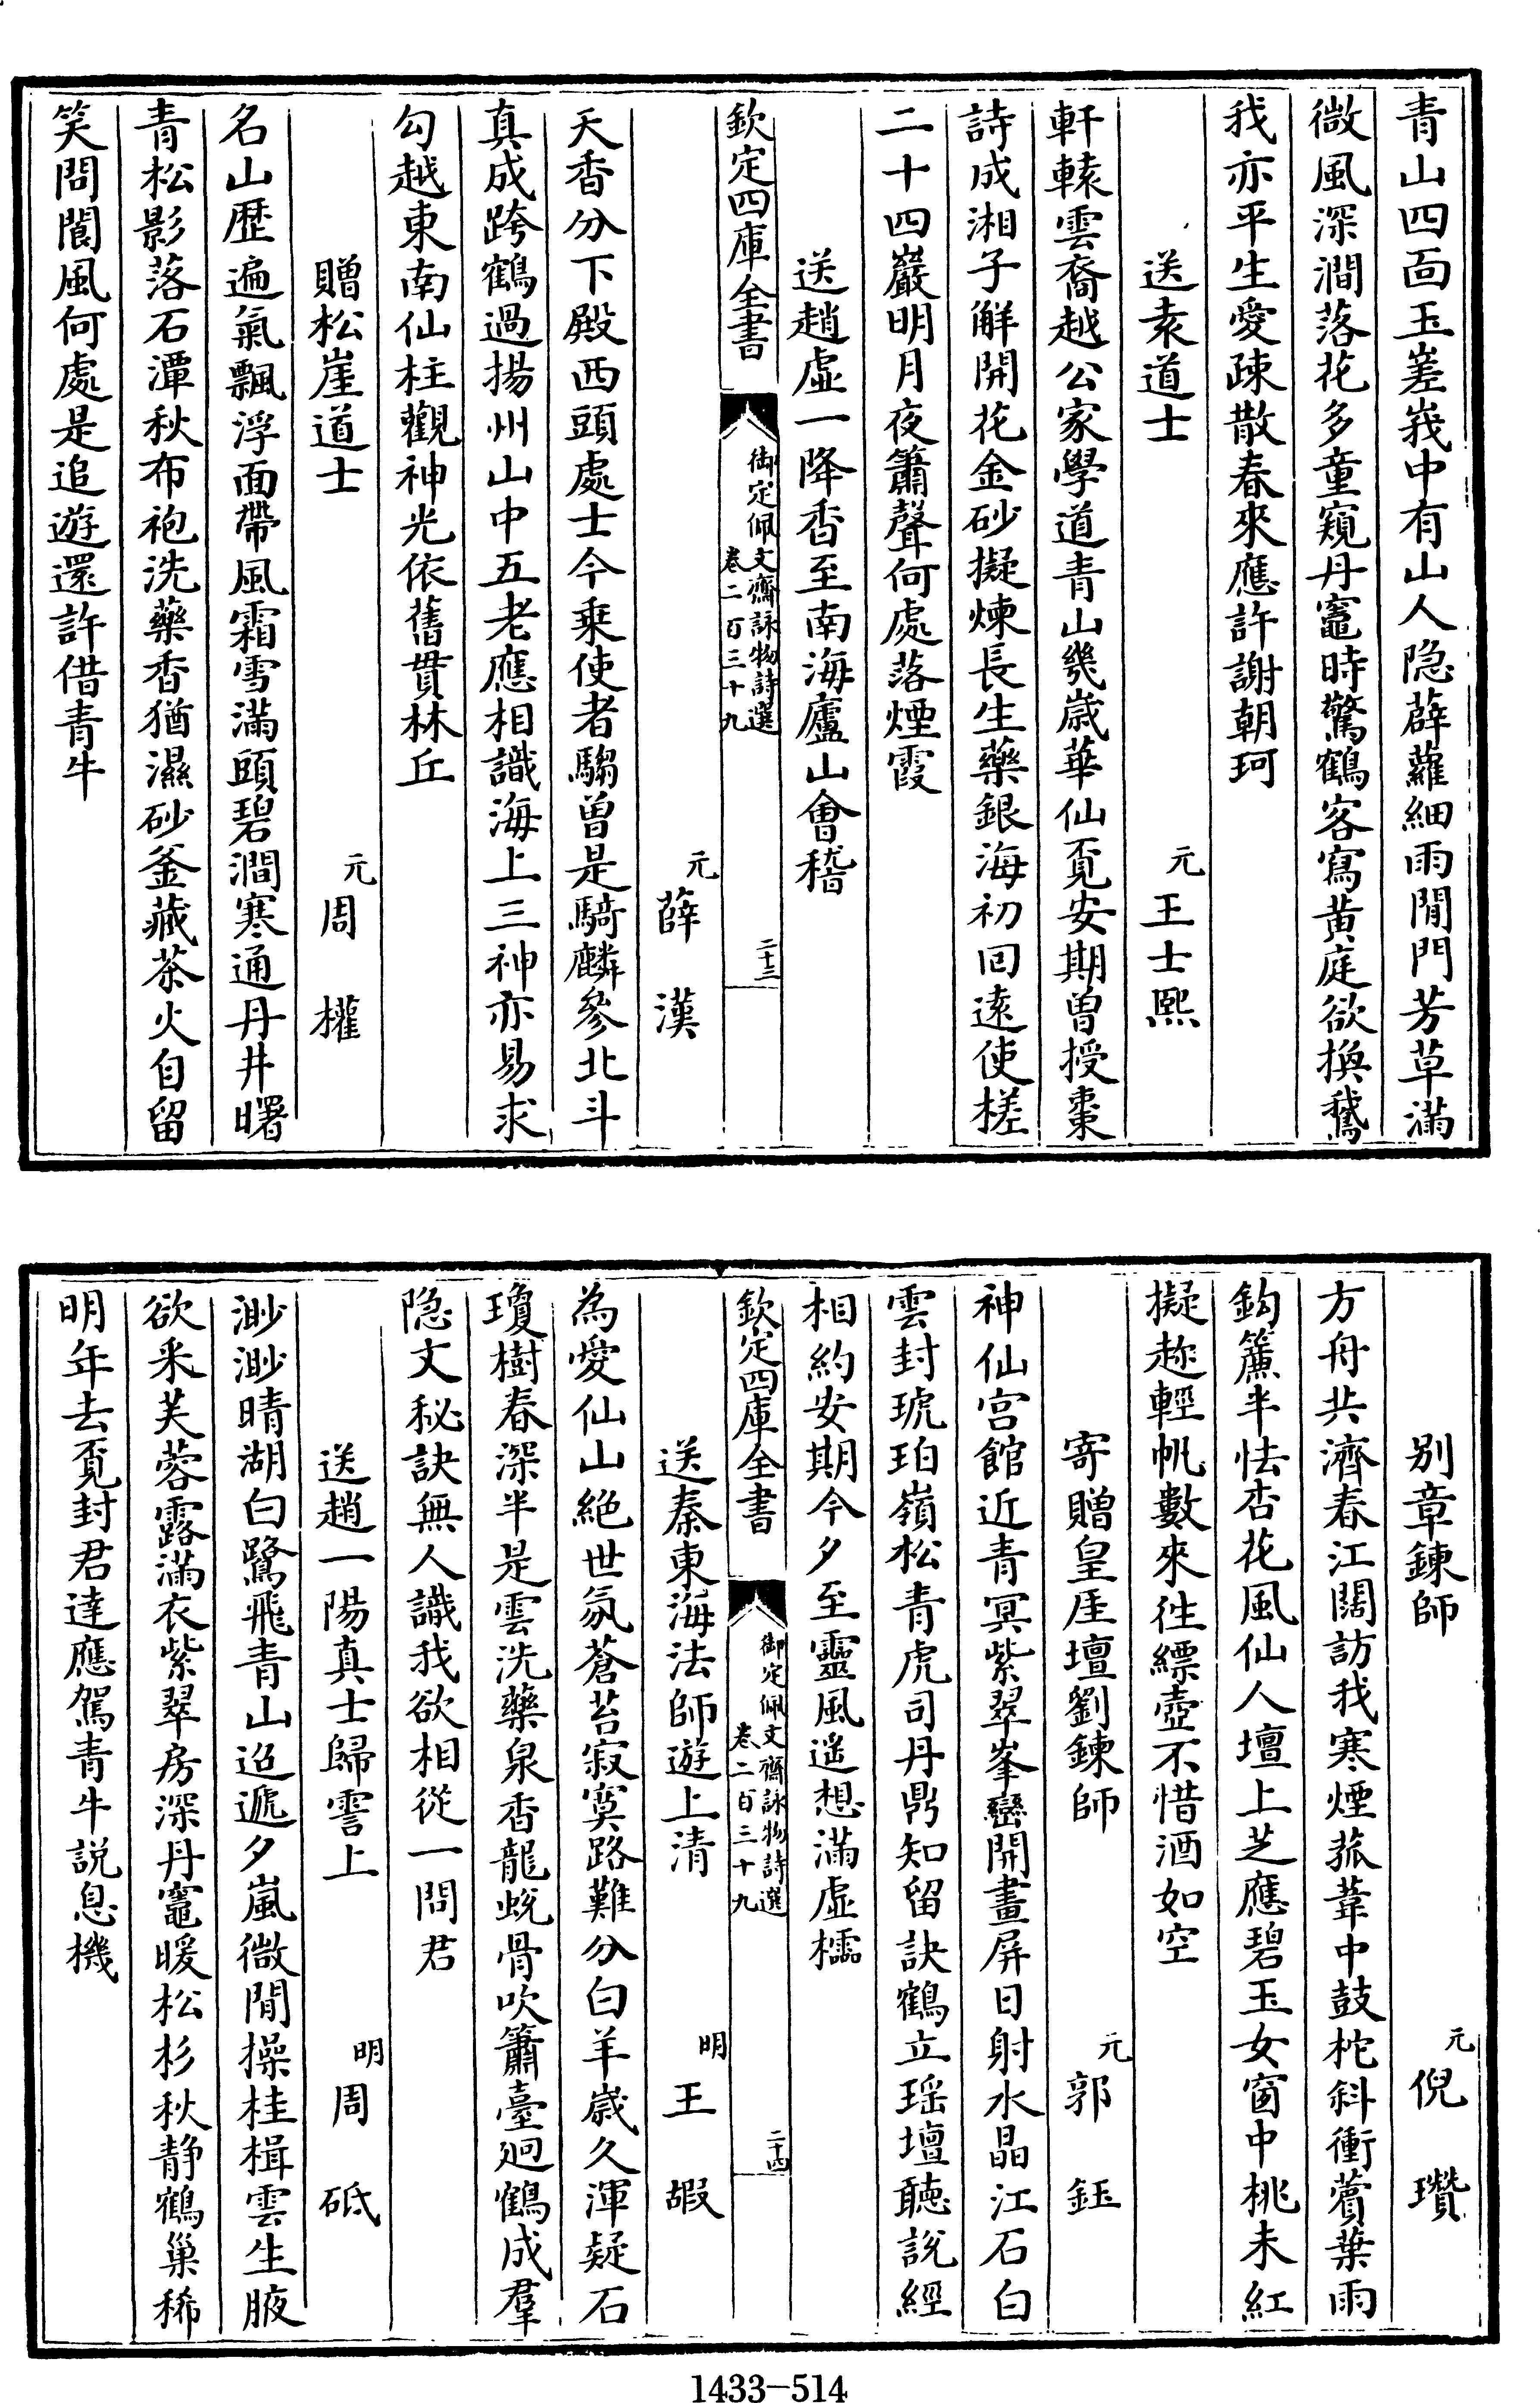 青山四面玉嵳峩中有山人隐薜蘿細雨閒門芳草滿
微風深澗落花多童窺丹竈時驚鶴客寫黄庭欲換鵞
我亦平生愛疎散春來應許謝朝珂
送袁道士
元
王士熙
軒轅雲裔越公家學道青山幾歳華仙覓安期曽授棗
詩成湘子解開花金砂擬煉長生藥銀海初回逺使槎
二十四巖明月夜簫聲何處落煙霞
送趙虛一降香至南海廬山會稽
欽定四庫全書
御定佩文齋詠物詩選
卷二百三十九
二十三
元
薛漢
天香分下殿西頭處士今乗使者騶曽是騎麟參北斗
真成跨鶴過揚州山中五老應相識海上三神亦易求
勾越東南仙柱觀神光依舊貫林丘
贈松崖道士
元
周權
名山歴遍氣飄浮面帶風霜雪滿頭碧澗寒通丹井曙
青松影落石潭秋布袍洗藥香猶濕砂釜藏茶火自留
笑問閬風何處是追遊還許借青牛
别章鍊師
元
倪瓚
方舟共濟春江闊訪我寒煙菰葦中鼓柁斜衝薲葉雨
鈎簾半怯杏花風仙人壇上芝應碧玉女窗中桃未紅
擬趂輕帆數來往縹壺不惜酒如空
寄贈皇厓壇劉鍊師
元
郭鈺
神仙宫館近青冥紫翠峯巒開畫屏日射水晶江石白
雲封琥珀嶺松青虎司丹鼎知留訣鶴立瑶壇聽說經
相約安期今夕至靈風遥想滿虛櫺
欽定四庫全書
御定佩文齋詠物詩選
卷二百三十九
二十四
送秦東海法師遊上清
明
王嘏
為愛仙山絶世氛蒼苔寂寞路難分白羊歳久渾疑石
瓊樹春深半是雲洗藥泉香龍蛻骨吹簫臺迥鶴成羣
隐文秘訣無人識我欲相從一問君
送趙一陽真士歸霅上
明
周砥
渺渺晴湖白鷺飛青山迢遞夕嵐微閒操桂楫雲生腋
欲采芙蓉露滿衣紫翠房深丹竈暖松杉秋静鶴巢稀
明年去覓封君達應駕青牛説息機
1433-514